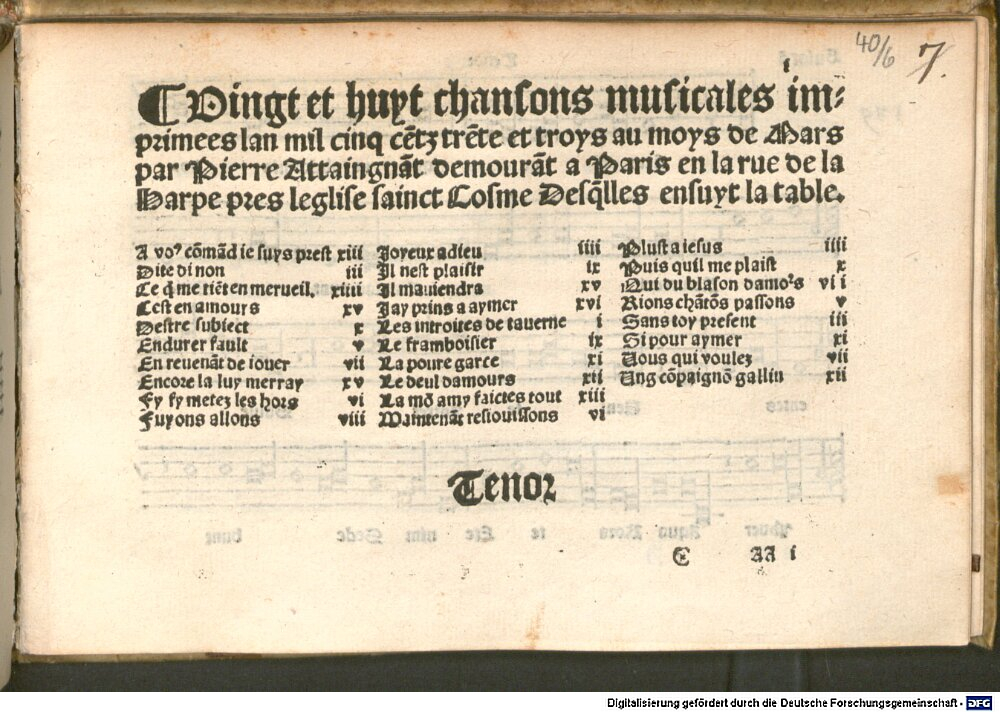 40/6 7.
Vingt et huyt chansons musicales im⸗
primees lan mil cinq cētz trēte et troys au moys de Mars
par Pierre Attaingnāt demourāt a Paris en la rue de la
Harpe pres leglise sainct Cosme Desq̄lles ensuyt la table.
A voꝰ cōmād ie suys prest xiii
Dite di non iii
Ce q̄ me tiēt en merueil. xiiii
Cest en amours xv
Destre subiect x
Endurer fault v
En reuenāt de iouer vii
Encore la luy merray xv
Fy fy metez les hors vi
Fuyons allons viii
Joyeux adieu iiii
Il nest plaisir ix
Il mauiendra xv
Jay prins a aymer xvi
Les introites de tauerne i
Le framboisier ix
La poure garce xi
Le deul damours xii
La mō amy faictes tout xiii
Maintenāt resiouissons vi
Plust a iesus iiii
Puis quil me plaist x
Qui du blason damoꝰs vii
Rions chātōs passons v
Sans toy present iii
Si pour aymer xi
Vous qui voulez vii
Ung cōpaignō gallin xii
Tenor
C AA i
Digitalisierung gefördert durch die Deutsche Forschungsgemeinschaft - DFG